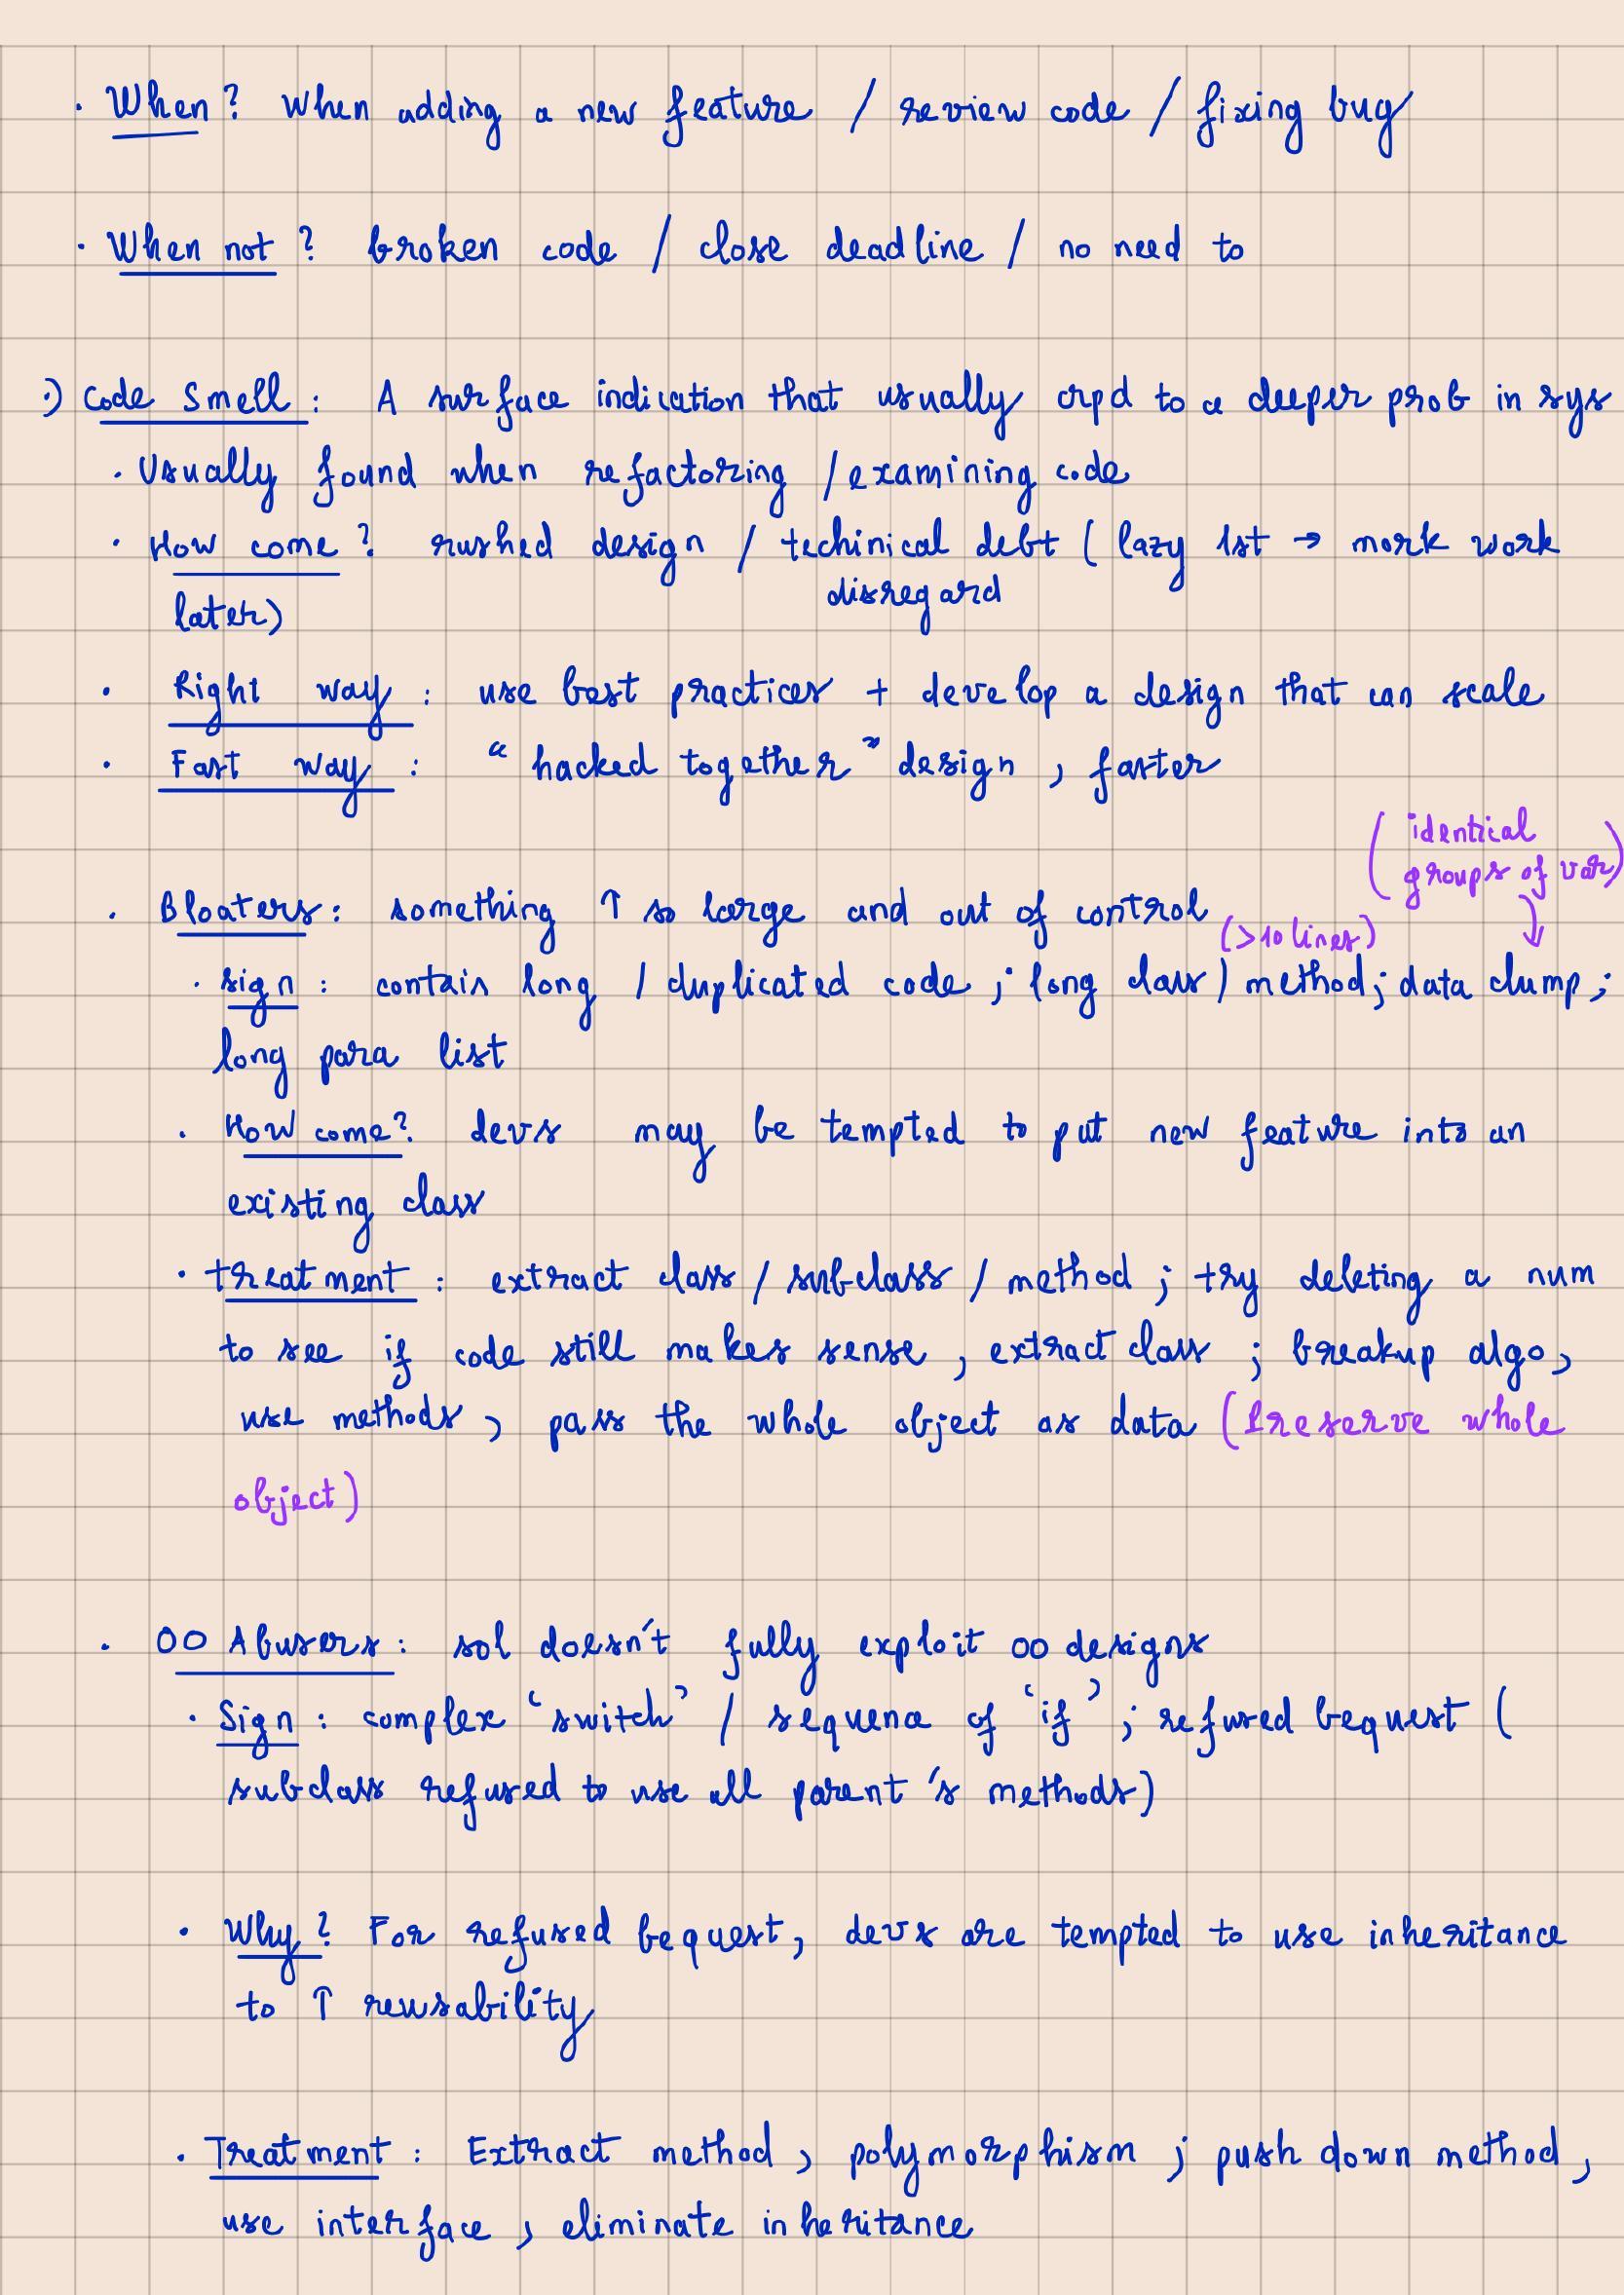 · When? When adding a new feature / review code / fixing bug
· When not? broken code / close deadline / no need to
·) Code Smell: A surface indication that usually crpd to a deeper prob in sys
· Usually found when refactoring / examining code
· How come? rushed design / techinical debt ( lazy 1st → mork work
disregard
later)
· Right way: use best practices + develop a design that can scale
· Fast way: "hacked together" design, faster
(identical
groups of var)
· Bloaters: something ↑ so large and out of control
(>10 lines)
· sign: contain long / duplicated code; long class) method; data clump;
long para list
· How come? devs may be tempted to put new feature into an
existing class
· treatment: extract class / subclass / method; try deleting a num
to see if code still makes sense, extract class; breakup algo,
use methods, pass the whole object as data (Preserve whole
object)
· OO Abusers: sol doesn't fully exploit OO designs
· Sign: complex 'switch' / sequence of 'if'; refused bequest (
subclass refused to use all parent's methods)
· Why? For refused bequest, devs are tempted to use inheritance
to ↑ reusability
· Treatment: Extract method, polymorphism; push down method,
use interface, eliminate inheritance